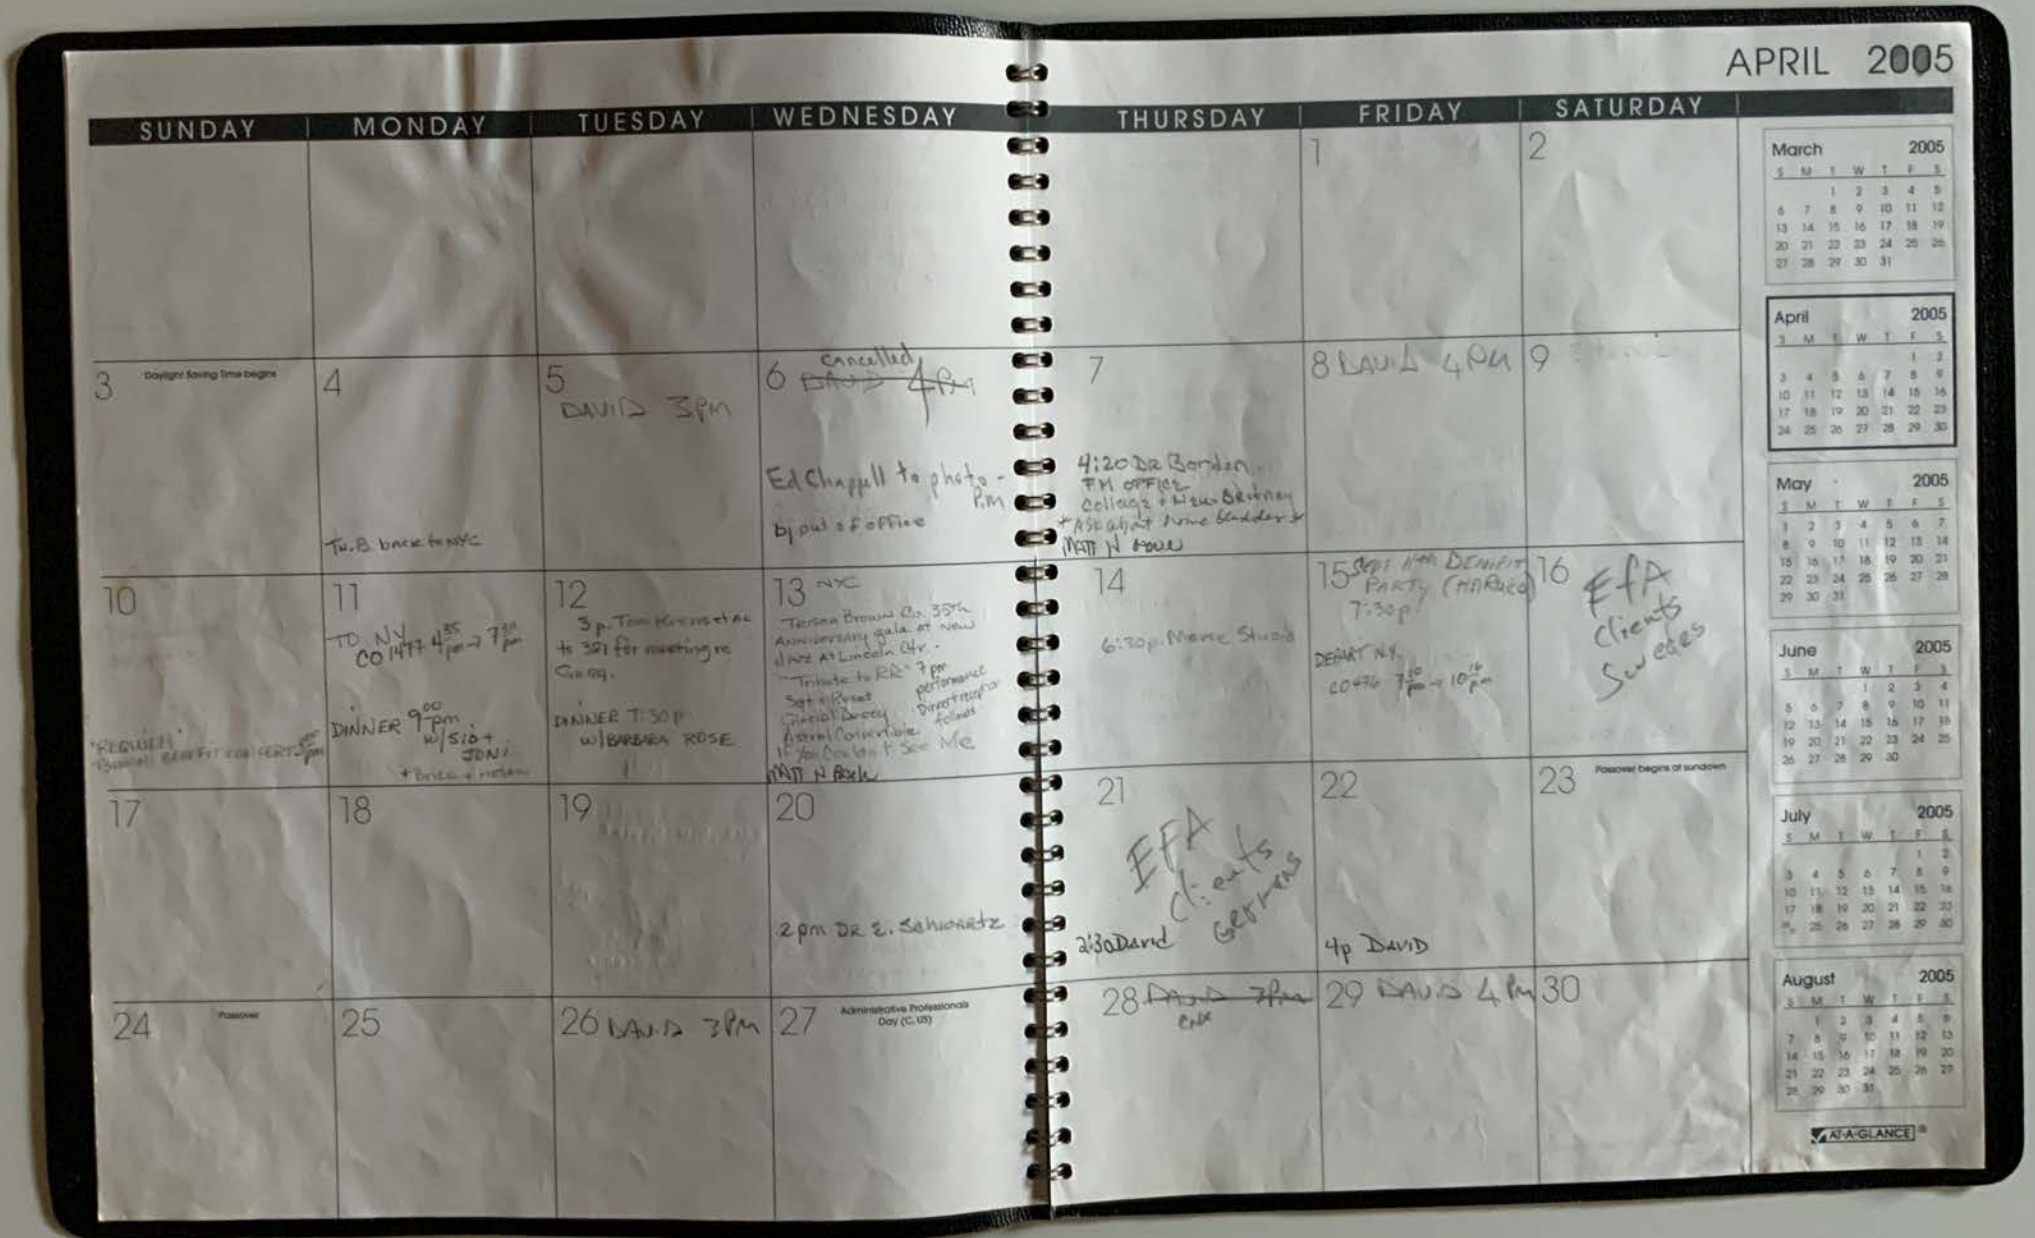 APRIL 2005
SUNDAY MONDAY TUESDAY WEDNESDAY THURSDAY FRIDAY SATURDAY
1
2
3 Daylight Saving Time begins
4
Tr.B. back to NYC
5
DAVID 3PM
6 cancelled
DAVID 4PM
Ed Chappell to photo -
P.M
bj out of office
7
4:20 DR Bordon
FM OFFICE
collage + New
*Ask about bladder *
MATT N
8 DAVID 4PM
9
10
"REQUIEM"
BENEFIT CONCERT
11
TO NY
CO 1477 4 35 pm → 7 30 pm
DINNER 9 00 pm
w/SID +
JONI
+ Brice +
12
3 p. Tom Krens et AL
to 381 for meeting re
Gugg.
DINNER 7:30 p
w/BARBARA ROSE
13 NYC
TRISHA Brown Co. 35th
ANNIVERSARY gala at New
JAZZ At Lincoln Ctr. -
"Tribute to RR" 7 pm
performance
Set + Reset
Dinner + reception
Glacial Decoy
follows
Astral Convertible
If You Couldn't See Me
MATT N
14
6:30p. Merce Studio
15 SEPT 11th BENEFIT
PARTY
7:30p!
DEPART NY
CO476 7 10 pm → 10 16 pm
16
EFA
Clients
Swedes
17
18
19
20
2 pm DR E. Schwartz
21
EFA
Clients
Germans
2:30 David
22
4p DAVID
23 Passover begins at sundown
24 Passover
25
26 DAVID 3PM
27 Administrative Professionals
Day (C, US)
28 DAVID 3PM
29 DAVID 4PM
30
March 2005
S M T W T F S
1 2 3 4 5
6 7 8 9 10 11 12
13 14 15 16 17 18 19
20 21 22 23 24 25 26
27 28 29 30 31
April 2005
S M T W T F S
1 2
3 4 5 6 7 8 9
10 11 12 13 14 15 16
17 18 19 20 21 22 23
24 25 26 27 28 29 30
May 2005
S M T W T F S
1 2 3 4 5 6 7
8 9 10 11 12 13 14
15 16 17 18 19 20 21
22 23 24 25 26 27 28
29 30 31
June 2005
S M T W T F S
1 2 3 4
5 6 7 8 9 10 11
12 13 14 15 16 17 18
19 20 21 22 23 24 25
26 27 28 29 30
July 2005
S M T W T F S
1 2
3 4 5 6 7 8 9
10 11 12 13 14 15 16
17 18 19 20 21 22 23
25 26 27 28 29 30
August 2005
S M T W T F S
1 2 3 4 5 6
7 8 9 10 11 12 13
14 15 16 17 18 19 20
21 22 23 24 25 26 27
28 29 30 31
AT-A-GLANCE®